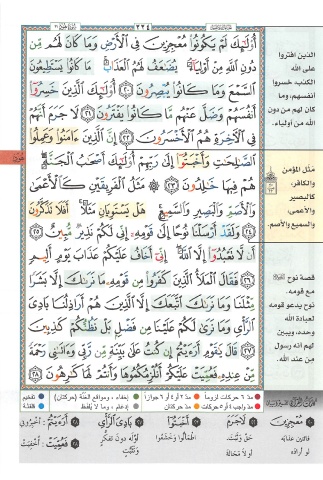 ٢٢٤
أُوْلَٰٓئِكَ لَمْ يَكُونُوا۟ مُعْجِزِينَ فِى ٱلْأَرْضِ وَمَا كَانَ لَهُم مِّن
دُونِ ٱللَّهِ مِنْ أَوْلِيَآءَ ۘ يُضَٰعَفُ لَهُمُ ٱلْعَذَابُ ۚ مَا كَانُوا۟ يَسْتَطِيعُونَ
ٱلسَّمْعَ وَمَا كَانُوا۟ يُبْصِرُونَ ٢٠ أُوْلَٰٓئِكَ ٱلَّذِينَ خَسِرُوٓا۟
أَنفُسَهُمْ وَضَلَّ عَنْهُم مَّا كَانُوا۟ يَفْتَرُونَ ٢١ لَا جَرَمَ أَنَّهُمْ
فِى ٱلْءَاخِرَةِ هُمُ ٱلْأَخْسَرُونَ ٢٢ إِنَّ ٱلَّذِينَ ءَامَنُوا۟ وَعَمِلُوا۟
ٱلصَّٰلِحَٰتِ وَأَخْبَتُوٓا۟ إِلَىٰ رَبِّهِمْ أُوْلَٰٓئِكَ أَصْحَٰبُ ٱلْجَنَّةِ ۖ
هُمْ فِيهَا خَٰلِدُونَ ٢٣ ۞ مَثَلُ ٱلْفَرِيقَيْنِ كَٱلْأَعْمَىٰ
وَٱلْأَصَمِّ وَٱلْبَصِيرِ وَٱلسَّمِيعِ ۚ هَلْ يَسْتَوِيَانِ مَثَلًا ۚ أَفَلَا تَذَكَّرُونَ
٢٤ وَلَقَدْ أَرْسَلْنَا نُوحًا إِلَىٰ قَوْمِهِۦٓ إِنِّى لَكُمْ نَذِيرٌ مُّبِينٌ ٢٥
أَن لَّا تَعْبُدُوٓا۟ إِلَّا ٱللَّهَ ۖ إِنِّىٓ أَخَافُ عَلَيْكُمْ عَذَابَ يَوْمٍ أَلِيمٍ
٢٦ فَقَالَ ٱلْمَلَأُ ٱلَّذِينَ كَفَرُوا۟ مِن قَوْمِهِۦ مَا نَرَىٰكَ إِلَّا بَشَرًا
مِّثْلَنَا وَمَا نَرَىٰكَ ٱتَّبَعَكَ إِلَّا ٱلَّذِينَ هُمْ أَرَاذِلُنَا بَادِىَ
ٱلرَّأْىِ وَمَا نَرَىٰ لَكُمْ عَلَيْنَا مِن فَضْلٍۭ بَلْ نَظُنُّكُمْ كَٰذِبِينَ
٢٧ قَالَ يَٰقَوْمِ أَرَءَيْتُمْ إِن كُنتُ عَلَىٰ بَيِّنَةٍ مِّن رَّبِّى وَءَاتَىٰنِى رَحْمَةً
مِّنْ عِندِهِۦ فَعُمِّيَتْ عَلَيْكُمْ أَنُلْزِمُكُمُوهَا وَأَنتُمْ لَهَا كَٰرِهُونَ ٢٨
الذين افتروا
على الله
الكذب، خسروا
انفسهم، وما
كان لهم من دون
الله من أولياء.
مثل المؤمن
والكافر:
كالبصير
والأعمى،
والسميع والأصم.
قصة نوح
مع قومه.
نوح يدعو قومه
لعبادة الله
وحده، ويبين
لهم أنه رسول
من عند الله.
مد ٦ حركات لزوماً
مد ٢ أو ٤ أو ٦ جوازاً
إخفاء، ومواقع الغنّة (حركتان)
تفخيم
مد واجب ٤ أو ٥ حركات
مد حركتان
إدغام، وما لا يُلفظ
قلقلة
مُعْجِزِينَ
فائتين عذابه
لو أراده
لَا جَرَمَ
حق وثبت،
أو لا محالة
أَخْبَتُوا
اطمأنوا وخشعوا
بَادِيَ الرَّأْيِ
أوله دون تفكر
وتثبت
أَرَأَيْتُمْ
أخبروني
فَعُمِّيَتْ
أخفيت